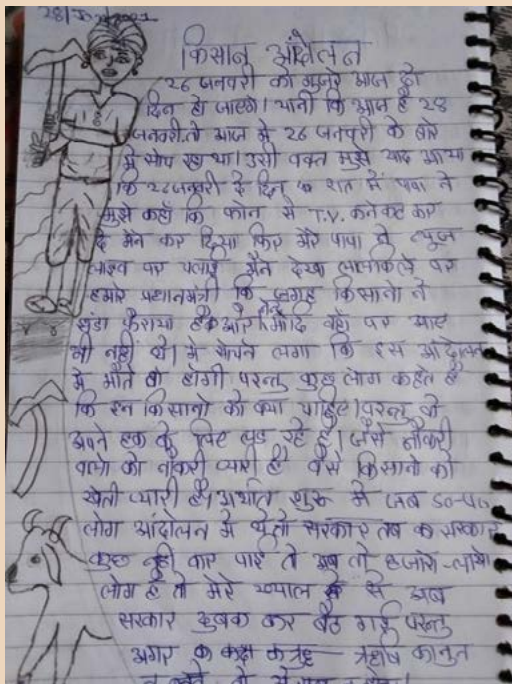 28/
किसान आंदोलन
26 जनवरी को गुजरे आज दो
दिन हो जाएगे। यानी कि आज है 28
जनवरी तो आज मे 26 जनवरी के बारे
मे सोच रहा था। उसी वक्त मुझे याद आया
कि 26 जनवरी के दिन रात में पापा ने
मुझे कहाँ कि फोन मे T.V. कनेकट कर
दे मेने कर दिया फिर मेरे पापा ने न्युज
लाइव पर चलाई मैने देखा लालकिले पर
हमारे प्रधानमंत्री कि जगह किसानो ने
झंडा फैराया है और मोदि वहाँ पर आए
भी नहीं थे। मे सोचने लगा कि इस आंदोलन
मे मौते तो होगी परन्तु कुछ लोग कहते है
कि इन किसानो को क्या चाहिए। परन्तु वो
अपने हक के लिए लड रहे है। जैसे नौकरी
वालो को नौकरी प्यारी है वैसे किसानो को
खेती प्यारी है। अर्थात शुरू मे जब 50-
लोग आंदोलन मे थे तो सरकार तब सरकार
कुछ नही कर पाई तो अब तो हजारो-लाखो
लोग है तो मेरे ख्याल से अब
सरकार दुबक कर बैठ गई परन्तु
अगर कानुन